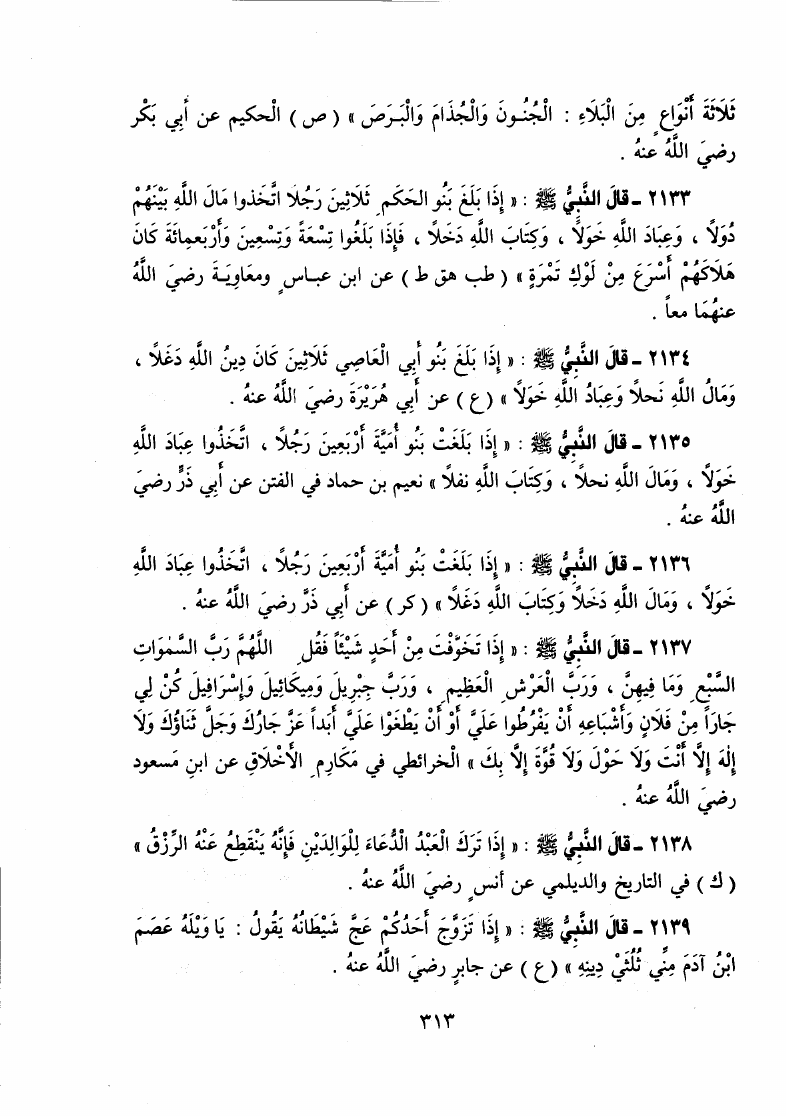 ثَلَاثَةَ أَنْوَاعٍ مِنَ الْبَلَاءِ : الْجُنُونَ وَالْجُذَامَ وَالْبَرَصَ » ( ص ) الْحكيم عن أَبي بَكْر
رضيَ اللَّهُ عنهُ .
٢١٣٣ - قالَ النَّبِيُّ ﷺ : « إِذَا بَلَغَ بَنُو الحَكَمِ ثَلَاثِينَ رَجُلاً اتَّخذوا مَالَ اللَّهِ بَيْنَهُمْ
دُوَلاً ، وَعِبَادَ اللَّهِ خَوَلاً ، وَكِتَابَ اللَّهِ دَخَلاً ، فَإِذَا بَلَغُوا تِسْعَةً وَتِسْعِينَ وَأَرْبَعمِائَة كَانَ
هَلَاكُهُمْ أَسْرَعَ مِنْ لَوْكِ تَمْرَةٍ » ( طب هق ط ) عن ابن عباسٍ ومعَاوِيَةَ رضيَ اللَّهُ
عنهُمَا معاً .
٢١٣٤ - قالَ النَّبِيُّ ﷺ : « إِذَا بَلَغَ بَنُو أَبي الْعَاصِي ثَلَاثِينَ كَانَ دِينُ اللَّهِ دَغَلاً ،
وَمَالُ اللَّهِ نَحلاً وَعِبَادُ اللَّهِ خَوَلاً » ( ع ) عن أَبي هُرَيْرَةَ رضيَ اللَّهُ عنهُ .
٢١٣٥ - قالَ النَّبِيُّ ﷺ : « إِذَا بَلَغَتْ بَنُو أُمَيَّةَ أَرْبَعِينَ رَجُلاً ، اتَّخَذُوا عِبَادَ اللَّهِ
خَوَلاً ، وَمَالَ اللَّهِ نحلاً ، وَكِتَابَ اللَّهِ نفلاً » نعيم بن حماد في الفتن عن أَبي ذَرٍّ رضيَ
اللَّهُ عنهُ .
٢١٣٦ - قالَ النَّبِيُّ ﷺ : « إِذَا بَلَغَتْ بَنُو أُمَيَّةَ أَرْبَعِينَ رَجُلاً ، اتَّخَذُوا عِبَادَ اللَّهِ
خَوَلاً ، وَمَالَ اللَّهِ دَخَلاً وَكِتَابَ اللَّهِ دَغَلاً » ( كر ) عن أَبي ذَرٍّ رضيَ اللَّهُ عنهُ .
٢١٣٧ - قالَ النَّبِيُّ ﷺ : « إِذَا تَخَوَّفْتَ مِنْ أَحَدٍ شَيْئَاً فَقُلِ اللَّهُمَّ رَبَّ السَّمٰوَاتِ
السَّبْعِ وَمَا فِيهِنَّ ، وَرَبَّ الْعَرْشِ الْعَظِيمِ ، وَرَبَّ جِبْرِيلَ وَمِيكَائِيلَ وَإِسْرَافِيلَ كُنْ لِي
جَارَاً مِنْ فُلَانٍ وَأَشْيَاعِهِ أَنْ يَفْرُطُوا عَلَيَّ أَوْ أَنْ يَطْغَوْا عَلَيَّ أَبَداً عَزَّ جَارُكَ وَجَلَّ ثَنَاؤُكَ وَلَا
إِلٰهَ إِلَّا أَنْتَ وَلَا حَوْلَ وَلَا قُوَّةَ إِلَّا بِكَ » الْخرائطي في مَكَارِمِ الأَخْلَاقِ عن ابنِ مَسعود
رضيَ اللَّهُ عنهُ .
٢١٣٨ - قالَ النَّبِيُّ ﷺ : « إِذَا تَرَكَ الْعَبْدُ الْدُّعَاءَ لِلْوَالِدَيْنِ فَإِنَّهُ يَنْقَطِعُ عَنْهُ الرِّزْقُ »
( ك ) في التاريخ والديلمي عن أَنسٍ رضيَ اللَّهُ عنهُ .
٢١٣٩ - قالَ النَّبِيُّ ﷺ : « إِذَا تَزَوَّجَ أَحَدُكُمْ عَجَّ شَيْطَانُهُ يَقُولُ : يَا وَيْلَهُ عَصَمَ
ابْنُ آدَمَ مِنِّي ثُلُثَيْ دِينِهِ » ( ع ) عن جابرٍ رضيَ اللَّهُ عنهُ .
٣١٣